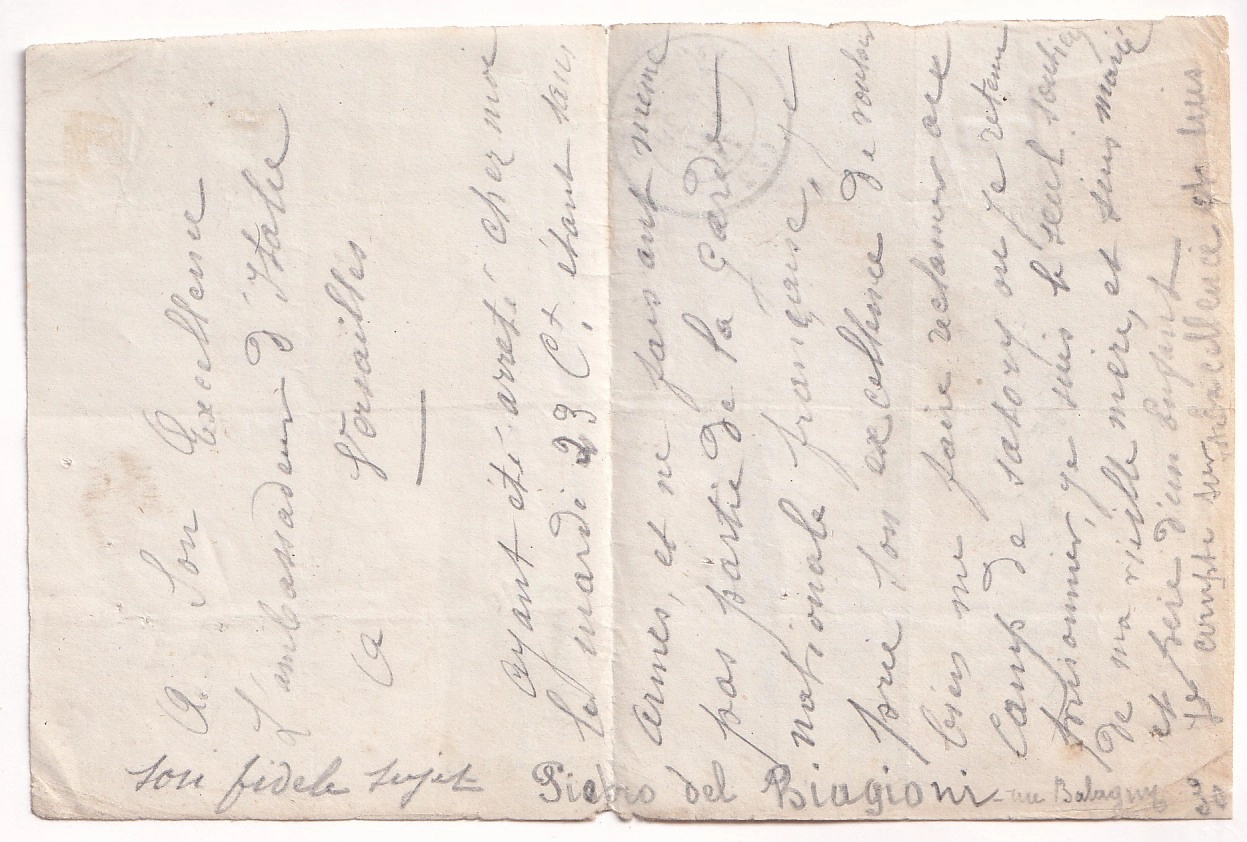 A Son Excellense
L'ambassadeur d'Italie
a Versailles
ayant été arreté chez moi
le mardi 23 Ct, étant sans
armes, et ne faisant meme
pas partie de la garde
nationale française,
prie son excellence de vouloir
bien me faire reclamer au
Camp de satory ou je retenu
prisonnier, je suis le seul soutien
de ma vieille mère, et suis marié
et père d'un enfant
je compte sur votre excellence
son fidele sujet Pietro del Biagioni